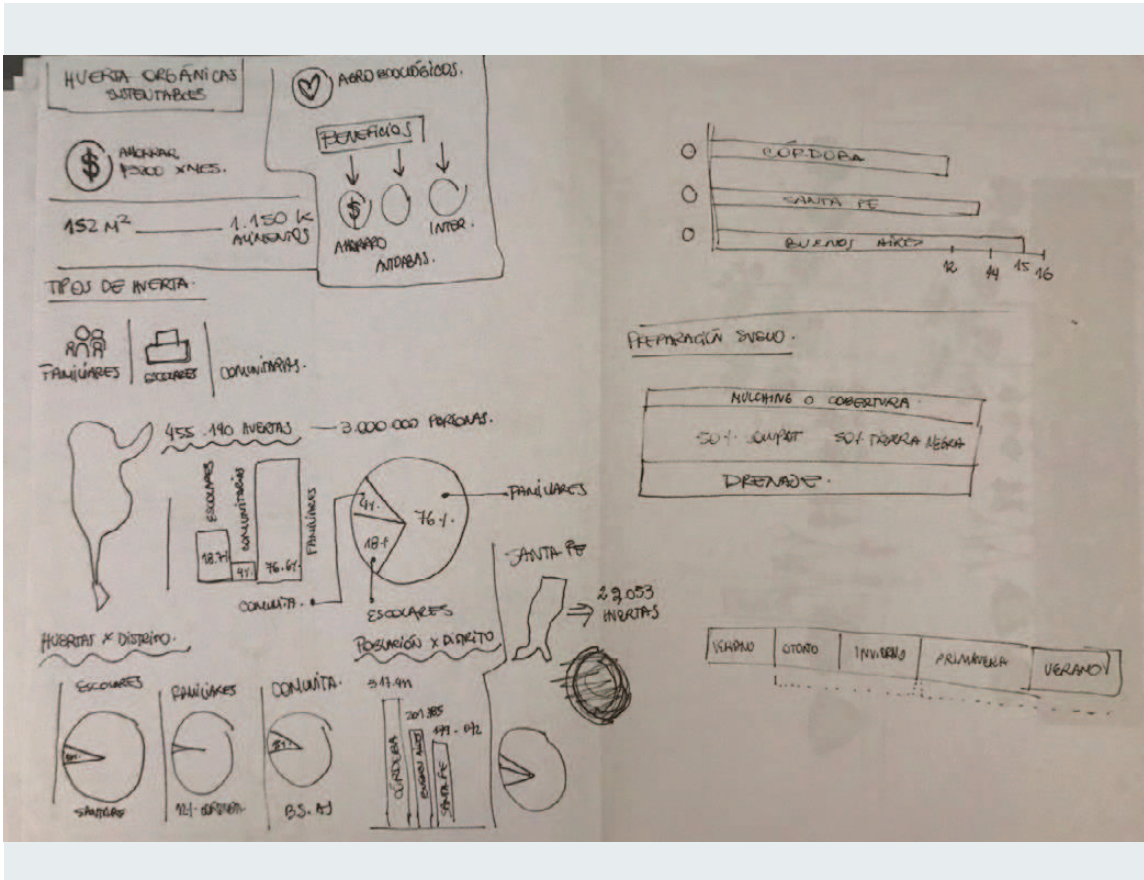 HUERTA ORGÁNICAS
SUSTENTABLES
AGROECOLÓGICOS.
BENEFICIOS
$
AHORRAR
X MES.
152 M² 1.150 K
ALIMENTOS
$
AHORRO
AUTOABAS.
INTER.
TIPOS DE HUERTA.
FAMILIARES
ESCOLARES
COMUNITARIAS.
455.190 HUERTAS — 3.000.000 PERSONAS.
ESCOLARES
COMUNITARIAS
FAMILIARES
18.7%
4%
76.6%
4%.
76%.
18%
FAMILIARES
COMUNITA.
ESCOLARES
SANTA FE
22,053
HUERTAS
HUERTAS X DISTRITO.
ESCOLARES
FAMILIARES
COMUNITA.
12%
BS. AS
POBLACIÓN X DISTRITO
CÓRDOBA
BUENOS AIRES
SANTA FE
CÓRDOBA
SANTA FE
BUENOS AIRES
12 14 15 16
PREPARACIÓN SUELO.
MULCHING O COBERTURA.
50% COMPOST 50% TIERRA NEGRA
DRENAJE.
VERANO OTOÑO INVIERNO PRIMAVERA VERANO